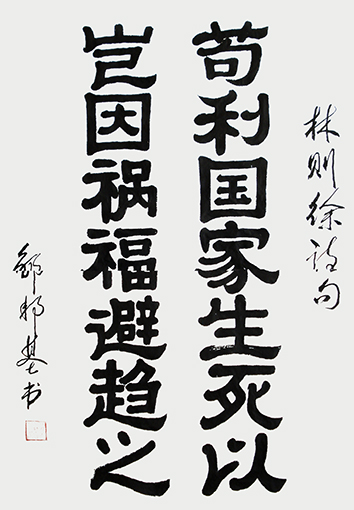 林则徐诗句
苟利国家生死以
岂因祸福避趋之
基书